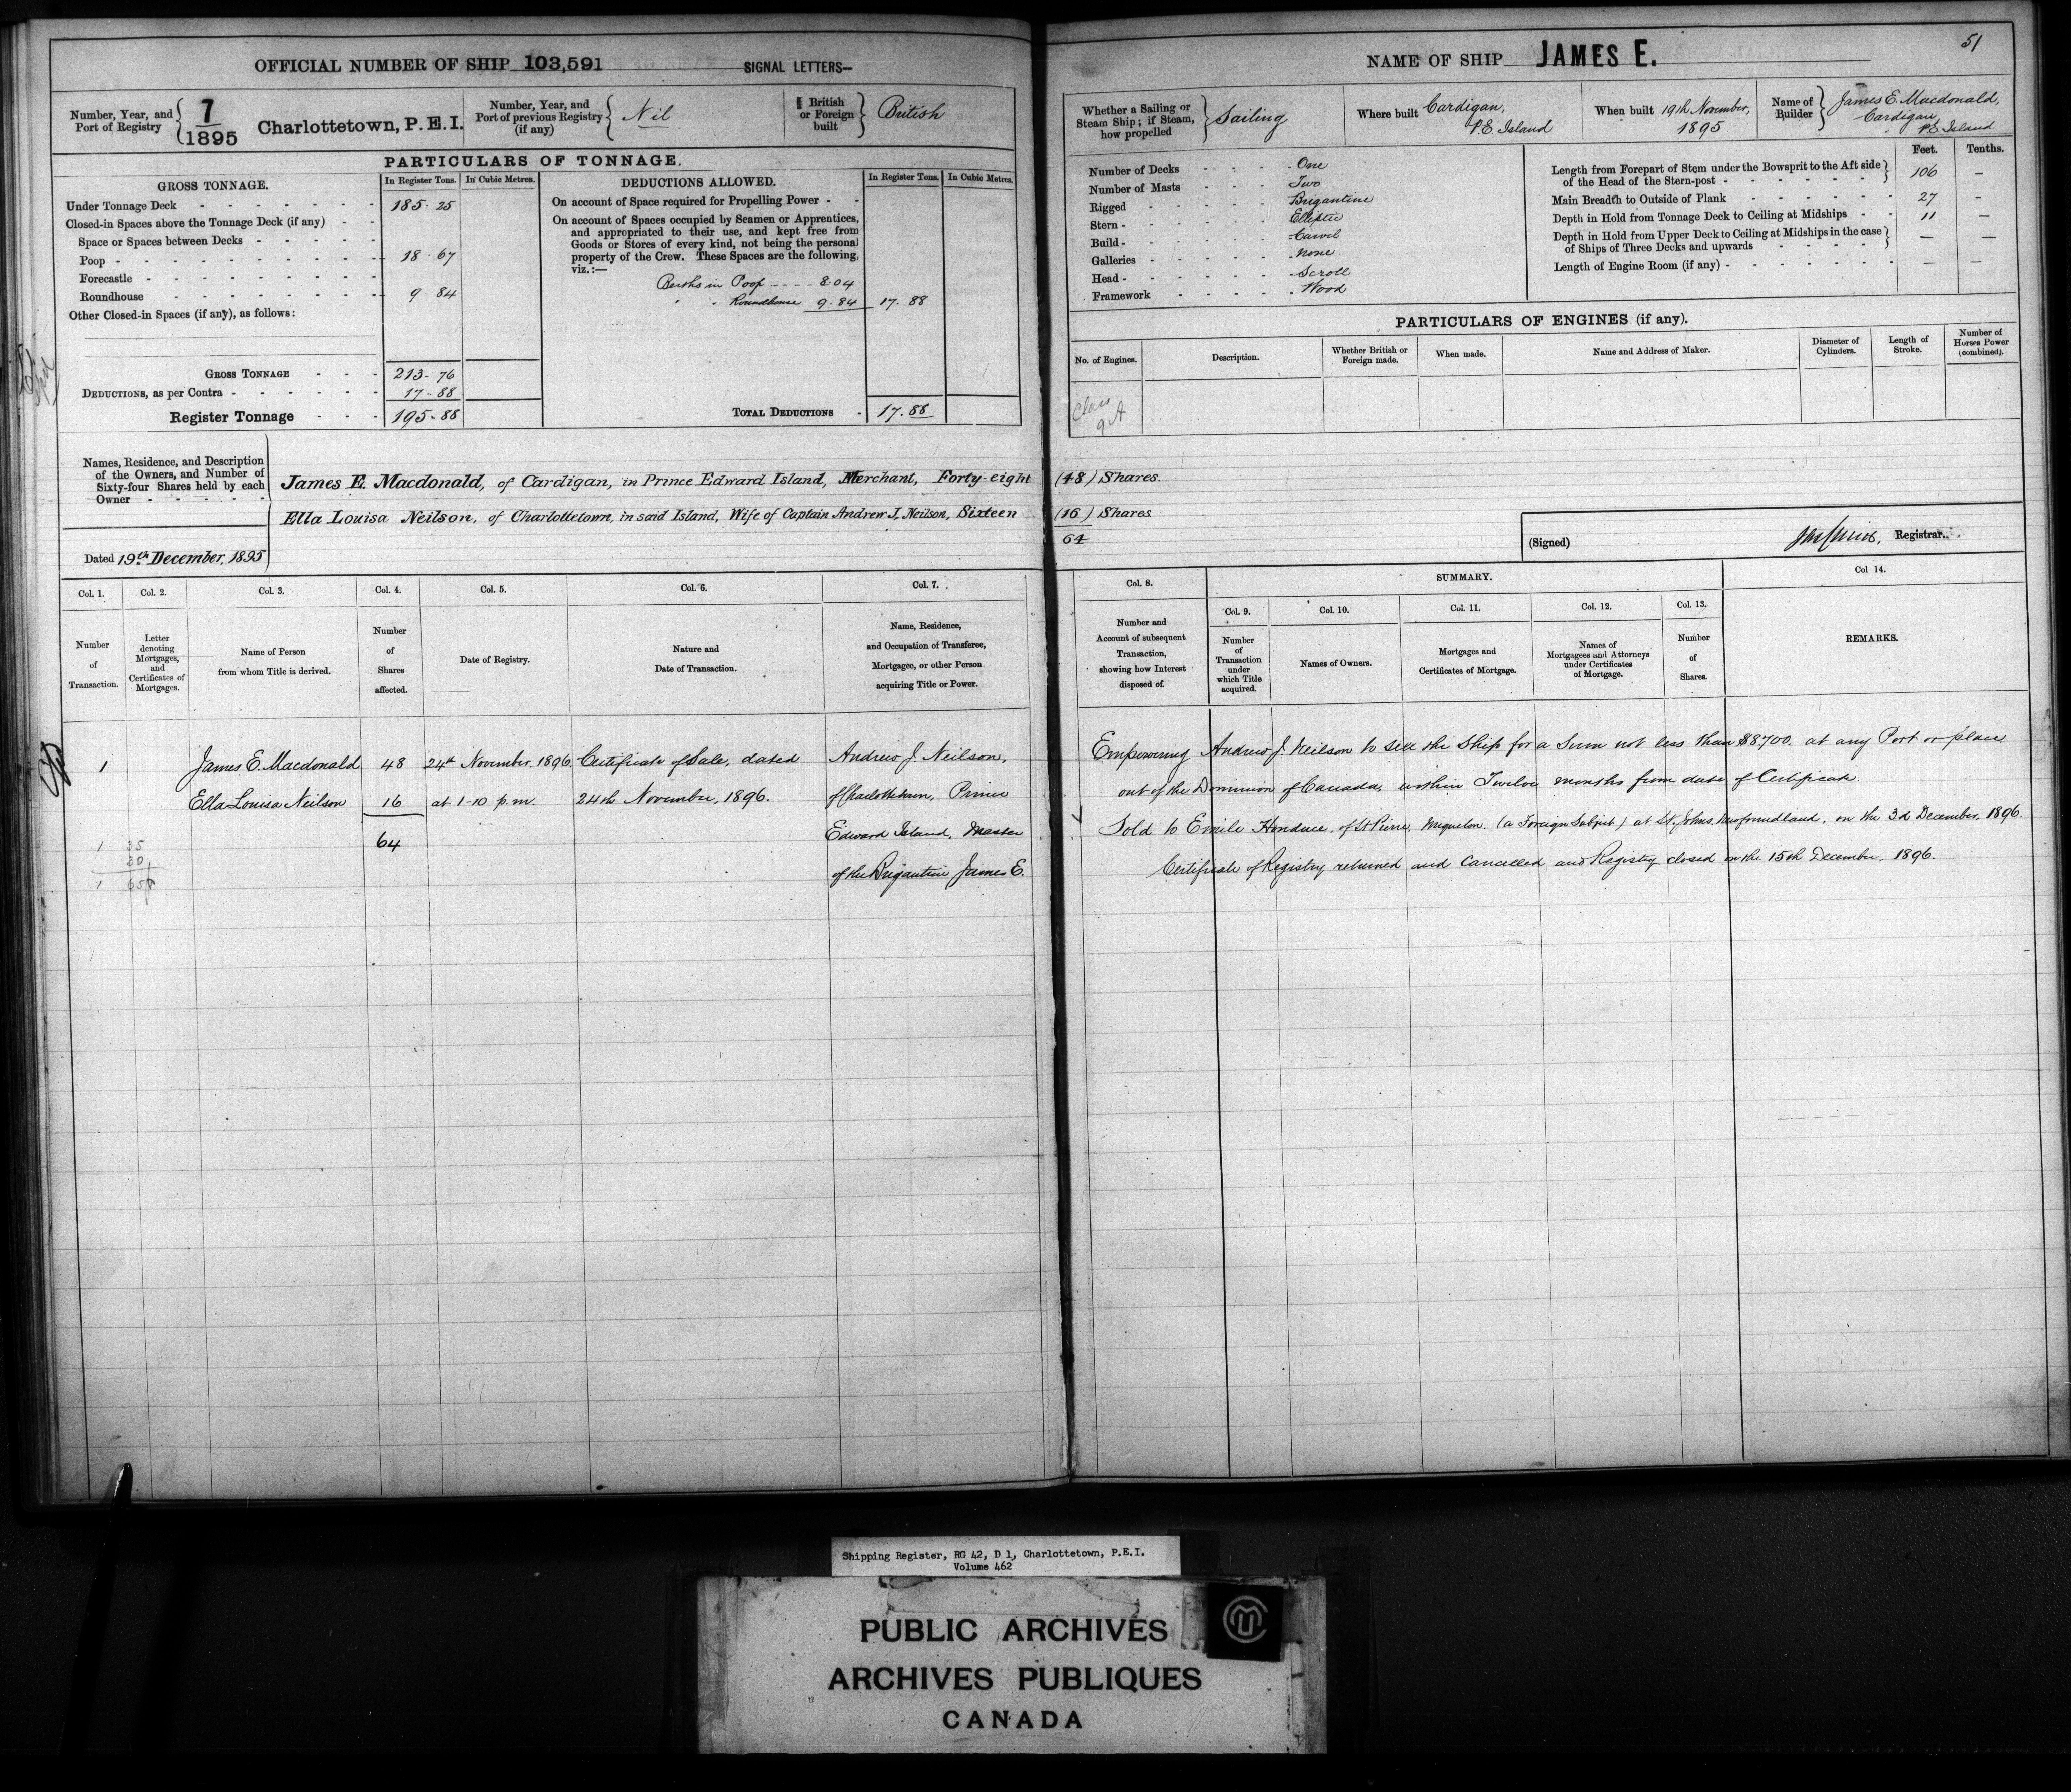 OFFICIAL NUMBER OF SHIP 103,591 SIGNAL LETTERS—
Number, Year, and Port of Registry { 7 / 1895 Charlottetown, P. E. I.
Number, Year, and Port of previous Registry (if any) { Nil
British or Foreign built } British
PARTICULARS OF TONNAGE.
GROSS TONNAGE. In Register Tons. In Cubic Metres.
Under Tonnage Deck - - - - - - - 185·25
Closed-in Spaces above the Tonnage Deck (if any) - -
Space or Spaces between Decks - - - - -
Poop - - - - - - - - - 18·67
Forecastle - - - - - - - -
Roundhouse - - - - - - - 9·84
Other Closed-in Spaces (if any), as follows:
GROSS TONNAGE - - - 213·76
DEDUCTIONS, as per Contra - - - - - - 17·88
Register Tonnage - - - 195·88
DEDUCTIONS ALLOWED. In Register Tons. In Cubic Metres.
On account of Space required for Propelling Power - -
On account of Spaces occupied by Seamen or Apprentices,
and appropriated to their use, and kept free from
Goods or Stores of every kind, not being the personal
property of the Crew. These Spaces are the following,
viz.:—
Berths in Poop - - - - 8·04
" " Roundhouse 9·84 17·88
TOTAL DEDUCTIONS - 17.88
Names, Residence, and Description
of the Owners, and Number of
Sixty-four Shares held by each
Owner - - - - -
James E. Macdonald, of Cardigan, in Prince Edward Island, Merchant, Forty-eight (48) Shares.
Ella Louisa Neilson, of Charlottetown, in said Island, Wife of Captain Andrew J. Neilson, Sixteen (16) Shares
64
Dated 19th December, 1895
51
NAME OF SHIP JAMES E.
Whether a Sailing or Steam Ship; if Steam, how propelled } Sailing
Where built Cardigan, P.E. Island
When built 19th November, 1895
Name of Builder } James E. Macdonald, Cardigan, P.E. Island
Number of Decks - - - One
Number of Masts - - - Two
Rigged - - - - Brigantine
Stern - - - - - Elliptic
Build - - - - - Carvel
Galleries - - - - - None
Head - - - - - Scroll
Framework - - - - Wood
Feet. Tenths.
Length from Forepart of Stem under the Bowsprit to the Aft side
of the Head of the Stern-post - - - - - - - } 106 —
Main Breadth to Outside of Plank - - - - - 27 —
Depth in Hold from Tonnage Deck to Ceiling at Midships - - 11 —
Depth in Hold from Upper Deck to Ceiling at Midships in the case
of Ships of Three Decks and upwards - - - - } — —
Length of Engine Room (if any) - - - - - - — —
PARTICULARS OF ENGINES (if any).
No. of Engines. Description. Whether British or Foreign made. When made. Name and Address of Maker. Diameter of Cylinders. Length of Stroke. Number of Horses Power (combined).
Class
9A
(Signed) Registrar.
Col. 1. Col. 2. Col. 3. Col. 4. Col. 5. Col. 6. Col. 7.
Number of Transaction.
Letter denoting Mortgages, and Certificates of Mortgages.
Name of Person from whom Title is derived.
Number of Shares affected.
Date of Registry.
Nature and Date of Transaction.
Name, Residence, and Occupation of Transferee, Mortgagee, or other Person acquiring Title or Power.
Col. 8. SUMMARY. Col 14.
Col. 9. Col. 10. Col. 11. Col. 12. Col. 13.
Number and Account of subsequent Transaction, showing how Interest disposed of.
Number of Transaction under which Title acquired.
Names of Owners.
Mortgages and Certificates of Mortgage.
Names of Mortgagees and Attorneys under Certificates of Mortgage.
Number of Shares.
REMARKS.
1 James E. Macdonald 48 24th November, 1896 Certificate of Sale, dated Andrew J. Neilson,
Ella Louisa Neilson 16 at 1-10 p.m. 24th November, 1896. of Charlottetown, Prince
64 Edward Island, Master
of the Brigantine James E.
1 35
30
1 65
Empowering Andrew J. Neilson to sell the Ship for a Sum not less than $8700. at any Port or place
out of the Dominion of Canada, within Twelve months from date of Certificate.
Sold to Emile of St Pierre, Miquelon, (a Foreign Subject) at St. Johns, Newfoundland, on the 3d December, 1896.
Certificate of Registry returned and Cancelled and Registry closed on the 15th December, 1896.
Shipping Register, RG 42, D 1, Charlottetown, P.E.I.
Volume 462
PUBLIC ARCHIVES
ARCHIVES PUBLIQUES
CANADA